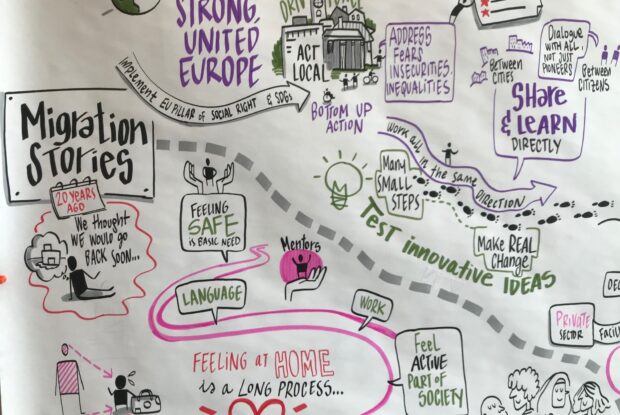 STRONG,
UNITED
EUROPE
ACT
LOCAL
ADDRESS
FEARS
INSECURITIES,
INEQUALITIES
Dialogue
WITH ALL,
NOT JUST
PIONEERS
BETWEEN
CITIES
BETWEEN
CITIZENS
Implement EU PILLAR OF SOCIAL RIGHT & SDGs
BOTTOM UP
ACTION
SHARE
& LEARN
DIRECTLY
Migration
STORIES
WORK ALL IN THE SAME DIRECTION
Many
SMALL
STEPS
20 YEARS
AGO
We thought
WE WOULD GO
BACK SOON...
FEELING
SAFE
IS BASIC NEED
TEST innovative IDEAS
Make REAL
CHANGE
Mentors
LANGUAGE
WORK
PRIVATE
SECTOR
FEELING AT HOME
is A LONG PROCESS...
Feel
ACTIVE
PART OF
SOCIETY